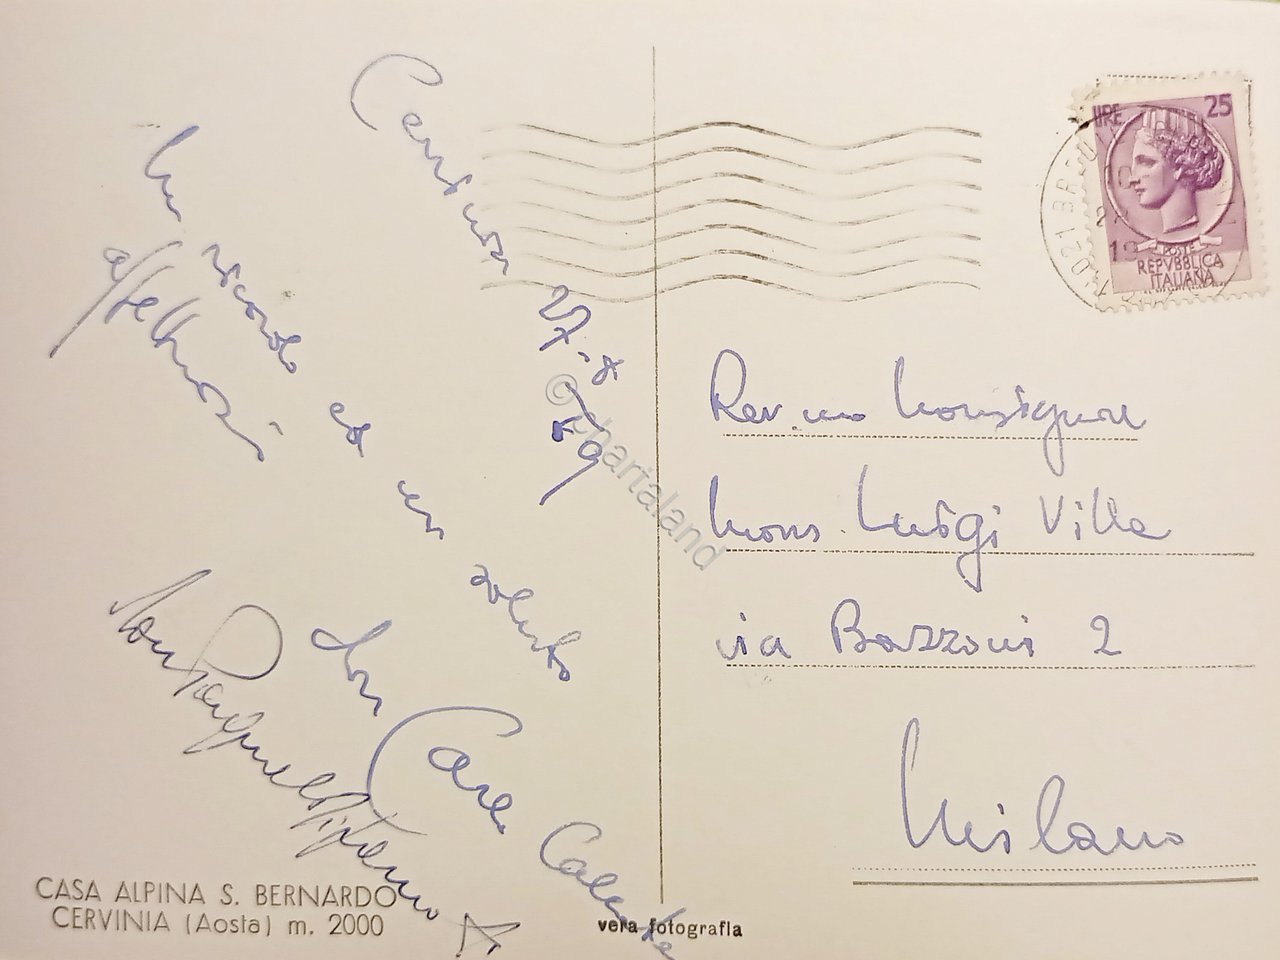 Cervinia 27-8-69
Un ricordo ed un saluto
affettuosi
don
Don Pasquale
CASA ALPINA S. BERNARDO
CERVINIA (Aosta) m. 2000
vera fotografia
LIRE 25
POSTE
REPVBBLICA
ITALIANA
11021 BREU
Rev.mo Monsignore
Mons. Luigi Villa
via Bazzoni 2
Milano
© chartaland